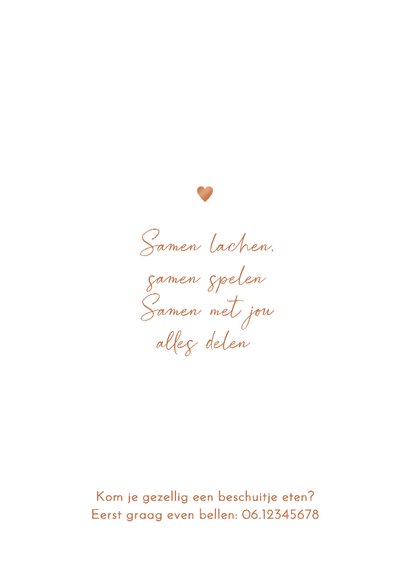 Samen lachen,
samen spelen
Samen met jou
alles delen
Kom je gezellig een beschuitje eten?
Eerst graag even bellen: 06.12345678